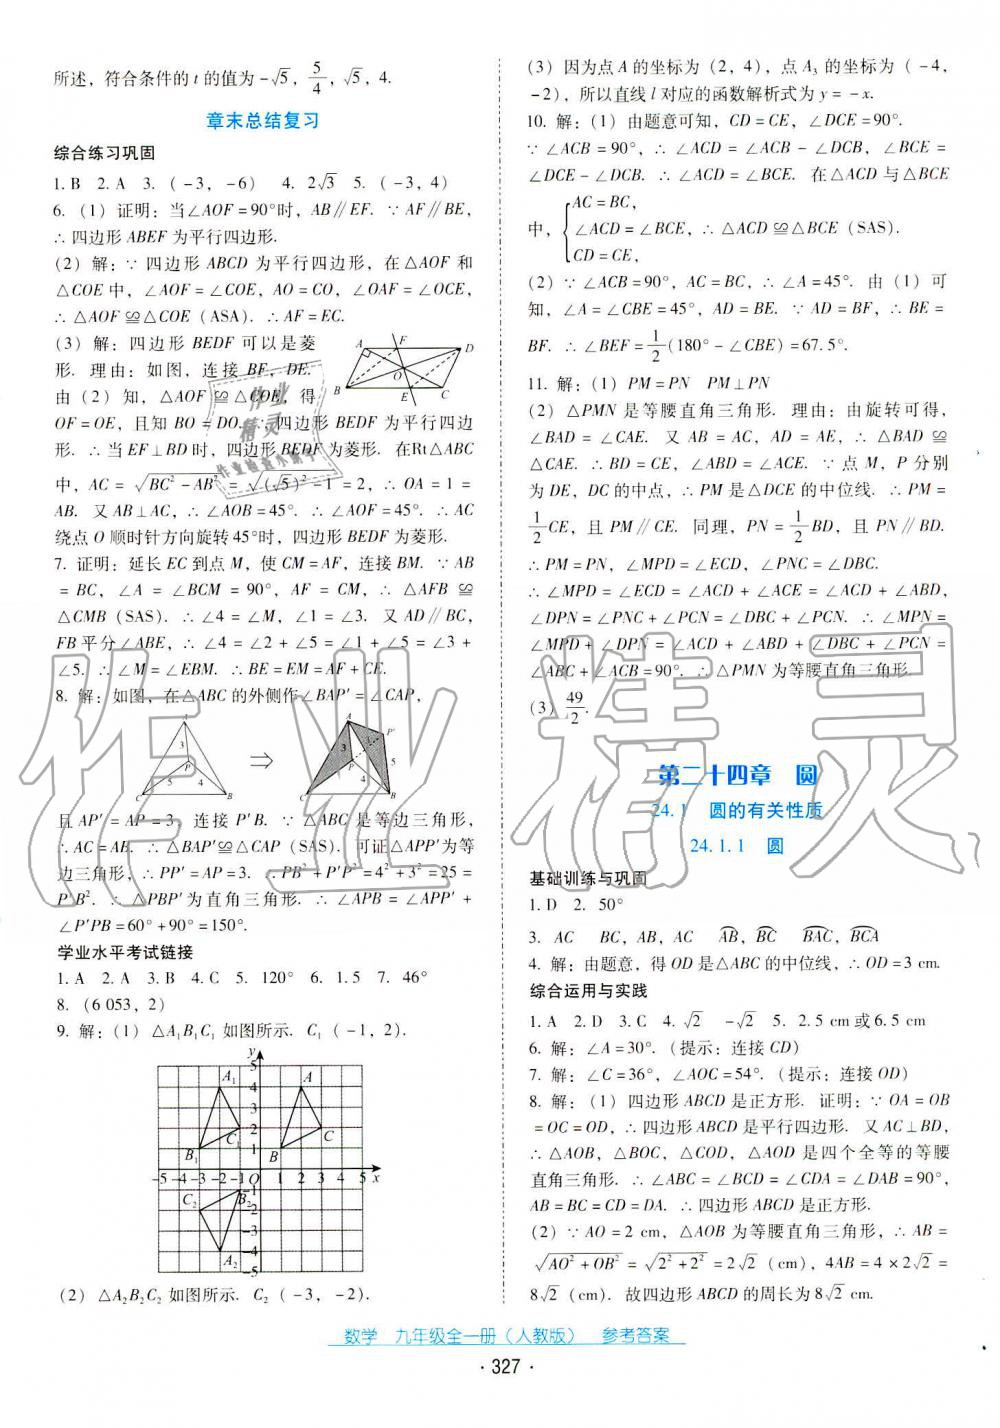 所述，符合条件的 t 的值为 －√5，5/4，√5，4.
章末总结复习
综合练习巩固
1. B　2. A　3.（－3，－6）　4. 2√3　5.（－3，4）
6.（1）证明：当∠AOF＝90°时，AB∥EF. ∵ AF∥BE，
∴ 四边形 ABEF 为平行四边形.
（2）解：∵ 四边形 ABCD 为平行四边形，在△AOF 和
△COE 中，∠AOF＝∠COE，AO＝CO，∠OAF＝∠OCE，
∴ △AOF ≌△COE（ASA）. ∴ AF＝EC.
（3）解：四边形 BEDF 可以是菱
形. 理由：如图，连接 BF，DE.
由（2）知，△AOF ≌△COE，得
OF＝OE，且知 BO＝DO. ∴ 四边形 BEDF 为平行四边
形. ∴ 当 EF⊥BD 时，四边形 BEDF 为菱形. 在Rt△ABC
中，AC＝√(BC²－AB²)＝√((√5)²－1)＝2，∴ OA＝1＝
AB. 又 AB⊥AC，∴ ∠AOB＝45°. ∴ ∠AOF＝45°. ∴ AC
绕点 O 顺时针方向旋转45°时，四边形 BEDF 为菱形.
A F D
O
B E C
7. 证明：延长 EC 到点 M，使 CM＝AF，连接 BM. ∵ AB
＝BC，∠A＝∠BCM＝90°，AF＝CM. ∴ △AFB ≌
△CMB（SAS）. ∴ ∠4＝∠M，∠1＝∠3. 又 AD∥BC，
FB平分∠ABE，∴ ∠4＝∠2＋∠5＝∠1＋∠5＝∠3＋
∠5. ∴ ∠M＝∠EBM. ∴ BE＝EM＝AF＋CE.
8. 解：如图，在△ABC 的外侧作∠BAP′＝∠CAP，
A 3 P 5 4 C B ⇒ A 3 3 P′ P 5 4 C B
且 AP′＝AP＝3，连接 P′B. ∵ △ABC 是等边三角形，
∴ AC＝AB. ∴ △BAP′≌△CAP（SAS）. 可证△APP′为等
边三角形，∴ PP′＝AP＝3. ∴ PB²＋P′P²＝4²＋3²＝25＝
P′B². ∴ △PBP′为直角三角形. ∴ ∠APB＝∠APP′＋
∠P′PB＝60°＋90°＝150°.
学业水平考试链接
1. A　2. A　3. B　4. C　5. 120°　6. 1.5　7. 46°
8.（6 053，2）
9. 解：（1）△A₁B₁C₁ 如图所示. C₁（－1，2）.
y
5
A₁ 4 A
3
C₁ 2 C
B₁ 1 B
-5 -4 -3 -2 -1 O 1 2 3 4 5 x
C₂ -1 B₂
-2
-3
A₂ -4
-5
（2）△A₂B₂C₂ 如图所示. C₂（－3，－2）.
（3）因为点 A 的坐标为（2，4），点 A₃ 的坐标为（－4，
－2），所以直线 l 对应的函数解析式为 y＝－x.
10. 解：（1）由题意可知，CD＝CE，∠DCE＝90°.
∵ ∠ACB＝90°，∴ ∠ACD＝∠ACB－∠DCB，∠BCE＝
∠DCE－∠DCB. ∴ ∠ACD＝∠BCE. 在△ACD 与△BCE
AC＝BC，
中，{∠ACD＝∠BCE，∴ △ACD ≌△BCE（SAS）.
CD＝CE，
（2）∵ ∠ACB＝90°，AC＝BC，∴ ∠A＝45°. 由（1）可
知，∠A＝∠CBE＝45°，AD＝BE. ∵ AD＝BF，∴ BE＝
BF. ∴ ∠BEF＝1/2(180°－∠CBE)＝67.5°.
11. 解：（1）PM＝PN　PM⊥PN
（2）△PMN 是等腰直角三角形. 理由：由旋转可得，
∠BAD＝∠CAE. 又 AB＝AC，AD＝AE，∴ △BAD ≌
△CAE. ∴ BD＝CE，∠ABD＝∠ACE. ∵ 点 M，P 分别
为 DE，DC 的中点，∴ PM 是△DCE 的中位线. ∴ PM＝
1/2CE，且 PM∥CE. 同理，PN＝1/2BD，且 PN∥BD.
∴ PM＝PN，∠MPD＝∠ECD，∠PNC＝∠DBC.
∴ ∠MPD＝∠ECD＝∠ACD＋∠ACE＝∠ACD＋∠ABD，
∠DPN＝∠PNC＋∠PCN＝∠DBC＋∠PCN. ∴ ∠MPN＝
∠MPD＋∠DPN＝∠ACD＋∠ABD＋∠DBC＋∠PCN＝
∠ABC＋∠ACB＝90°. ∴ △PMN 为等腰直角三角形.
（3）49/2.
第二十四章　圆
24.1　圆的有关性质
24.1.1　圆
基础训练与巩固
1. D　2. 50°
3. AC　BC，AB，AC　A͡B，B͡C　B͡AC，B͡CA
4. 解：由题意，得 OD 是△ABC 的中位线，∴ OD＝3 cm.
综合运用与实践
1. A　2. D　3. C　4. √2　－√2　5. 2.5 cm 或 6.5 cm
6. 解：∠A＝30°.（提示：连接 CD）
7. 解：∠C＝36°，∠AOC＝54°.（提示：连接 OD）
8. 解：（1）四边形 ABCD 是正方形. 证明：∵ OA＝OB
＝OC＝OD，∴ 四边形 ABCD 是平行四边形. 又 AC⊥BD，
∴ △AOB，△BOC，△COD，△AOD 是四个全等的等腰
直角三角形. ∴ ∠ABC＝∠BCD＝∠CDA＝∠DAB＝90°，
AB＝BC＝CD＝DA. ∴ 四边形 ABCD 是正方形.
（2）∵ AO＝2 cm，△AOB 为等腰直角三角形，∴ AB＝
√(AO²＋OB²)＝√(2²＋2²)＝2√2（cm），4AB＝4×2√2＝
8√2（cm）. 故四边形 ABCD 的周长为 8√2 cm.
数学　九年级全一册（人教版）　参考答案
· 327 ·
作业精灵
作业精灵
作业检查小助手